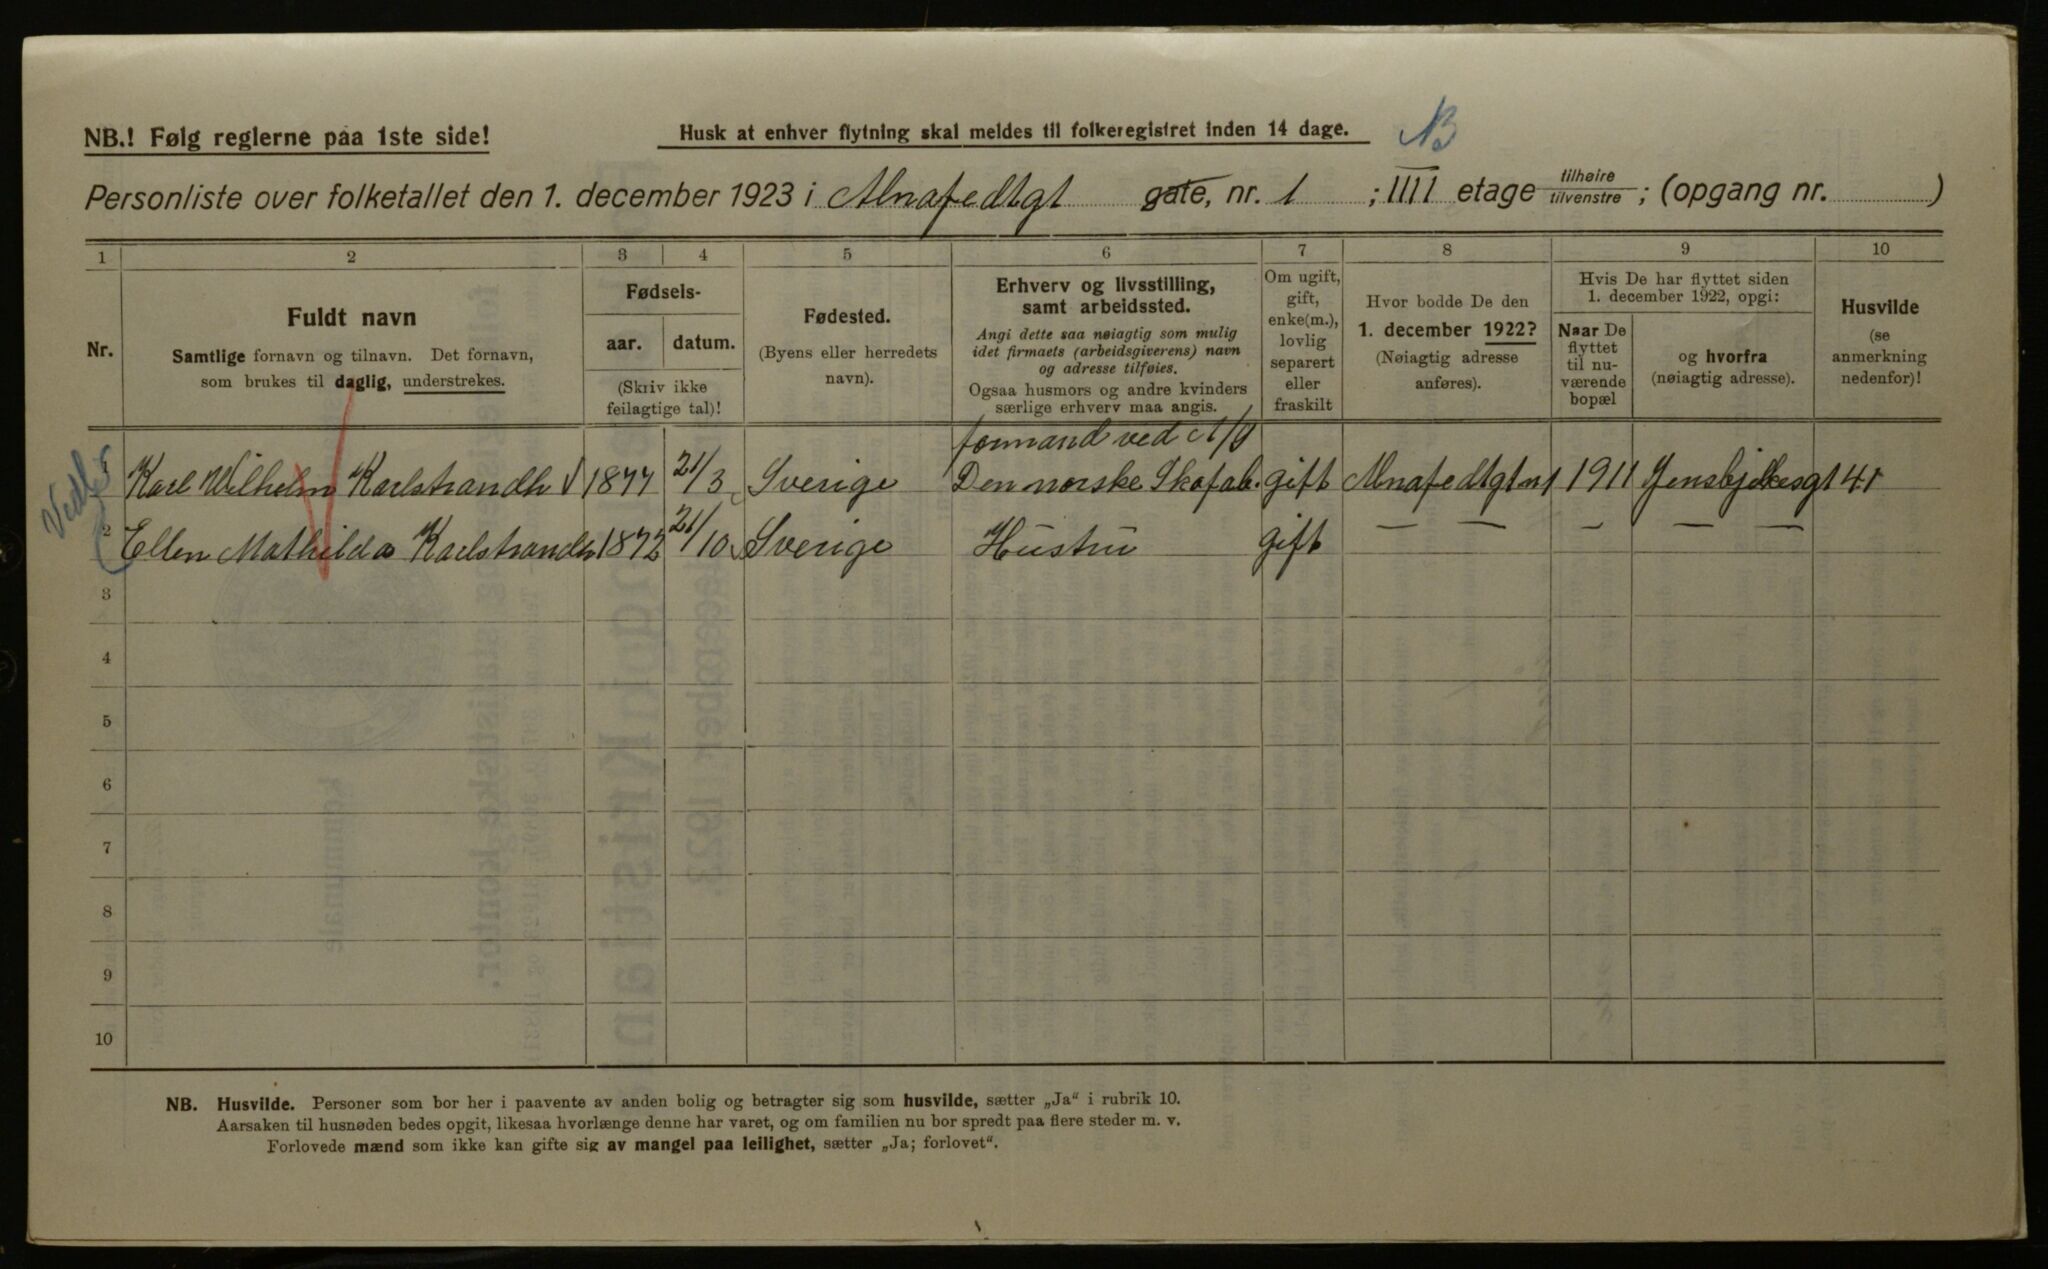 NB.! Følg reglerne paa 1ste side!
Husk at enhver flytning skal meldes til folkeregistret inden 14 dage. NB
Personliste over folketallet den 1. december 1923 i Almafedtgt gate, nr. 1 ; IIII etage tilhøire tilvenstre ; (opgang nr. )
1 2 3 4 5 6 7 8 9 10
Nr.
Fuldt navn
Samtlige fornavn og tilnavn. Det fornavn,
som brukes til daglig, understrekes.
Fødsels-
aar. datum.
(Skriv ikke
feilagtige tal)!
Fødested.
(Byens eller herredets
navn).
Erhverv og livsstilling,
samt arbeidssted.
Angi dette saa nøiagtig som mulig
idet firmaets (arbeidsgiverens) navn
og adresse tilføies.
Ogsaa husmors og andre kvinders
særlige erhverv maa angis.
Om ugift,
gift,
enke(m.),
lovlig
separert
eller
fraskilt
Hvor bodde De den
1. december 1922?
(Nøiagtig adresse
anføres).
Hvis De har flyttet siden
1. december 1922, opgi:
Naar De
flyttet
til nu-
værende
bopæl
og hvorfra
(nøiagtig adresse).
Husvilde
(se
anmerkning
nedenfor)!
formand ved A/S
1 Karl Wilhelm Karlstrandh 1877 21/3 Sverige Den norske Skofab. gift Almafedtgt n 1 1911 Jensbjelkesgt 41
2 Ellen Mathilda Karlstrandh 1872 21/10 Sverige Hustru gift — — — — —
3
4
5
6
7
8
9
10
NB. Husvilde. Personer som bor her i paavente av anden bolig og betragter sig som husvilde, sætter „Ja“ i rubrik 10.
Aarsaken til husnøden bedes opgit, likesaa hvorlænge denne har varet, og om familien nu bor spredt paa flere steder m. v.
Forlovede mænd som ikke kan gifte sig av mangel paa leilighet, sætter „Ja; forlovet“.